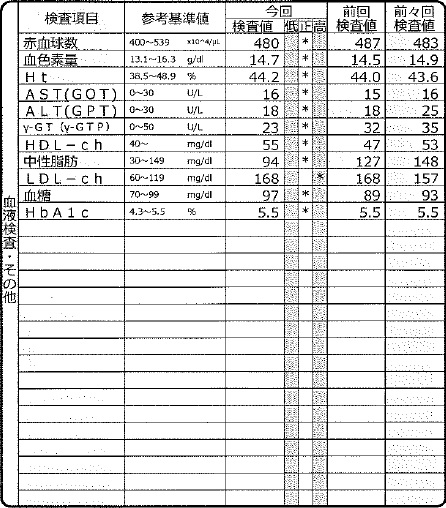 検査項目 参考基準値 今回 前回 前々回
検査値 低 正 高 検査値 検査値
赤血球数 400~539 x10^4/μL 480 * 487 483
血色素量 13.1~16.3 g/dl 14.7 * 14.5 14.9
Ht 38.5~48.9 % 44.2 * 44.0 43.6
AST(GOT) 0~30 U/L 16 * 15 16
ALT(GPT) 0~30 U/L 18 * 18 25
γ-GT(γ-GTP) 0~50 U/L 23 * 32 35
HDL-ch 40~ mg/dl 55 * 47 53
中性脂肪 30~149 mg/dl 94 * 127 148
LDL-ch 60~119 mg/dl 168 * 168 157
血糖 70~99 mg/dl 97 * 89 93
HbA1c 4.3~5.5 % 5.5 * 5.5 5.5
血液検査・その他